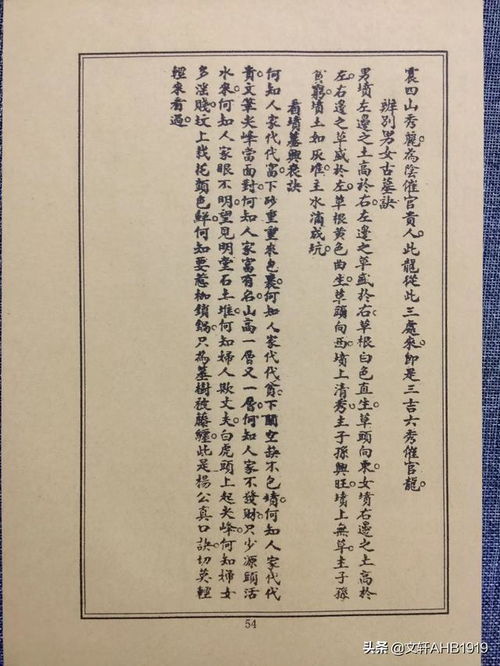 震四山秀麗。為陰催官貴人。此龍從此三處來。卽是三吉六秀催官龍。
辨別男女古墓訣
男墳左邊之土高於右。左邊之草盛於右。草根白色直生。草頭向東。女墳右邊之土高於
左。右邊之草盛於左。草根黃色曲生。草頭向西。墳上清秀。主子孫興旺。墳上無草。主子孫
貧窮。墳土如灰堆。主水滴成坑。
看墳墓興衰訣
何知人家代代富。下砂重重來包裹。何知人家代代貧。下關空缺不包墳。何知人家代代
貴。文筆尖峰當面對。何知人家富有名。山高一層又一層。何知人家不發財。只少源頭活
水來。何知人家眼不明。望見明堂石土堆。何知婦人欺丈夫。白虎頭上起尖峰。何知婦女
多淫賤。坟上栽花顏色鮮。何知要惹枷鎖鍋。只為墓樹被藤纏。此是楊公真口訣。切莫輕
輕來看過。
54
头条 @文轩AHB1919